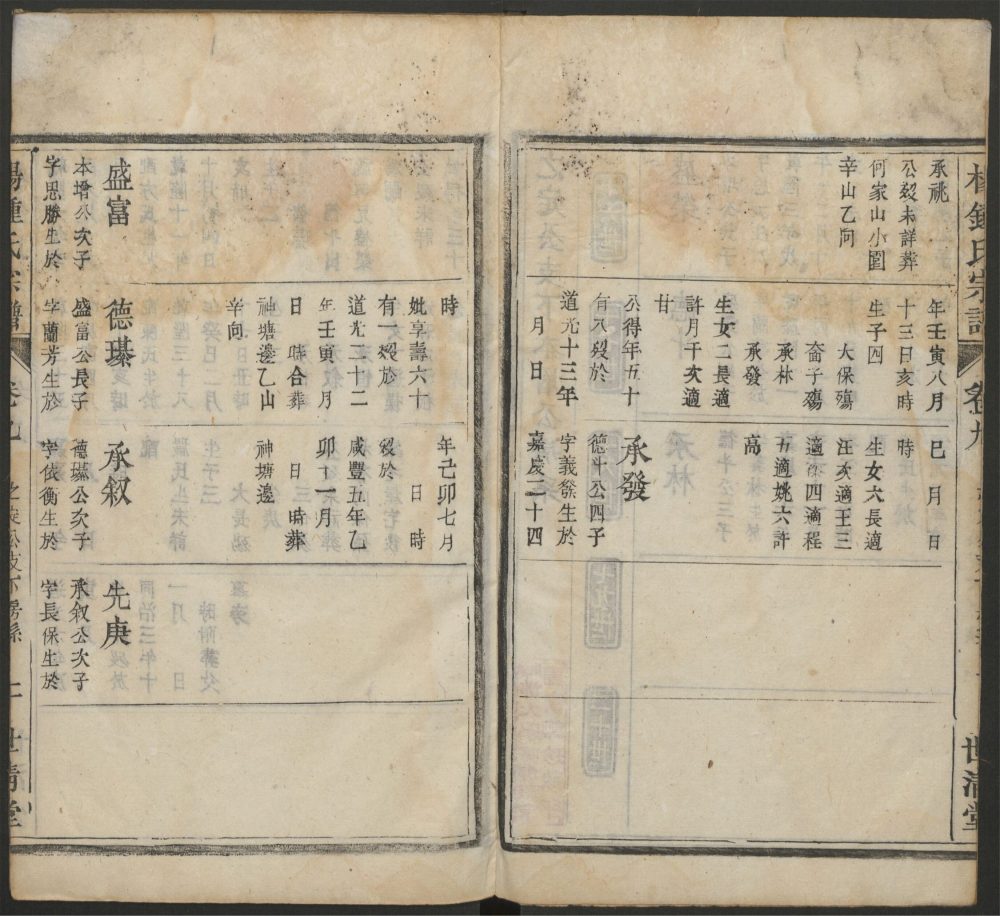 承祧
公歿未詳葬
何家山小園
辛山乙向
年壬寅八月
十三日亥時
生子四
大保殤
奮子殤
承林
承發
生女二長適
許月千次適
甘
公得年五十
有八歿於
道光十三年
月 日
巳 月 日
時
生女六長適
汪次適王三
適 四適程
五適姚六許
高
承發
德斗公四子
字義發生於
嘉慶二十四
世清堂
盛富
本增公次子
字思勝生於
時
妣享壽六十
有一歿於
道光二十二
年壬寅 月
日 時合葬
神塘邊乙山
辛向
德瑧
盛富公長子
字蘭芳生於
年己卯七月
日 時
歿於
咸豐五年乙
卯十一月
日 時葬
神塘邊
承叙
德瑧公次子
字依衡生於
先庚
承叙公次子
字長保生於